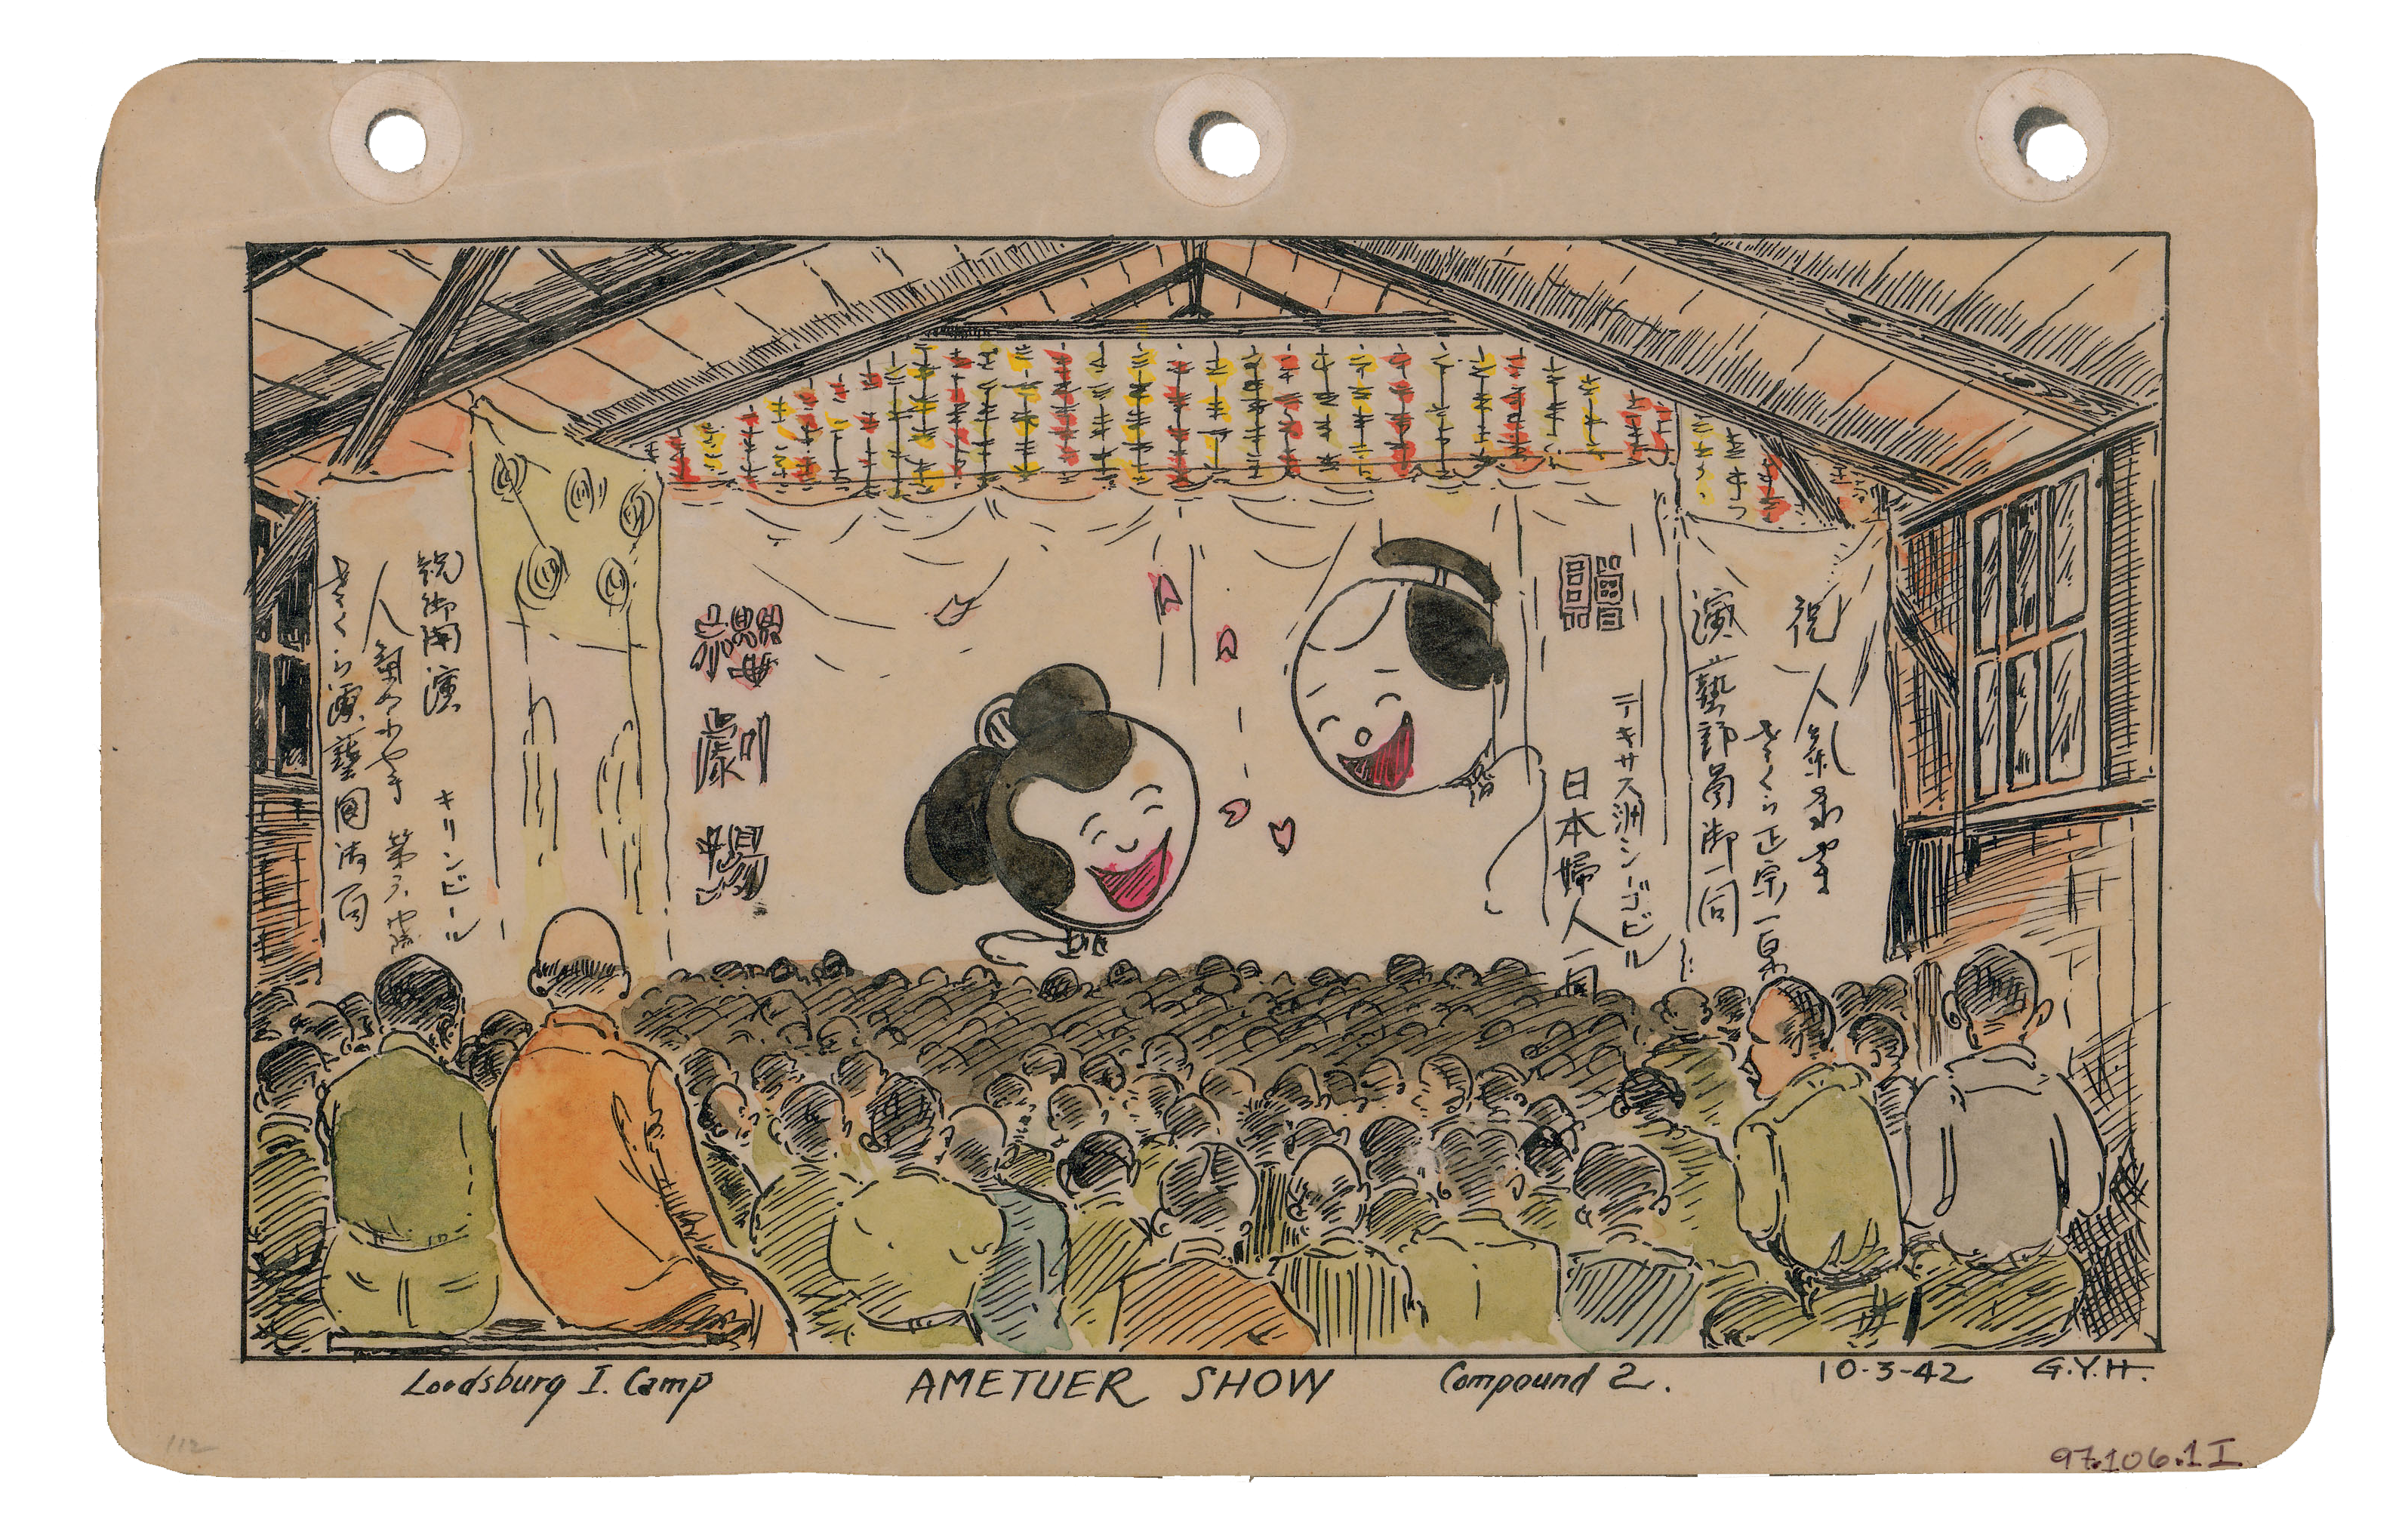 祝 人氣
さくら正宗一
演藝部員御一同
テキサス洲シーゴビル
日本婦人一同
劇
場
祝御開演 キリンビール
人氣 第
さくら演藝團
Lordsburg I. Camp AMETUER SHOW Compound 2. 10-3-42 G.Y.H.
112
97.106.1 I